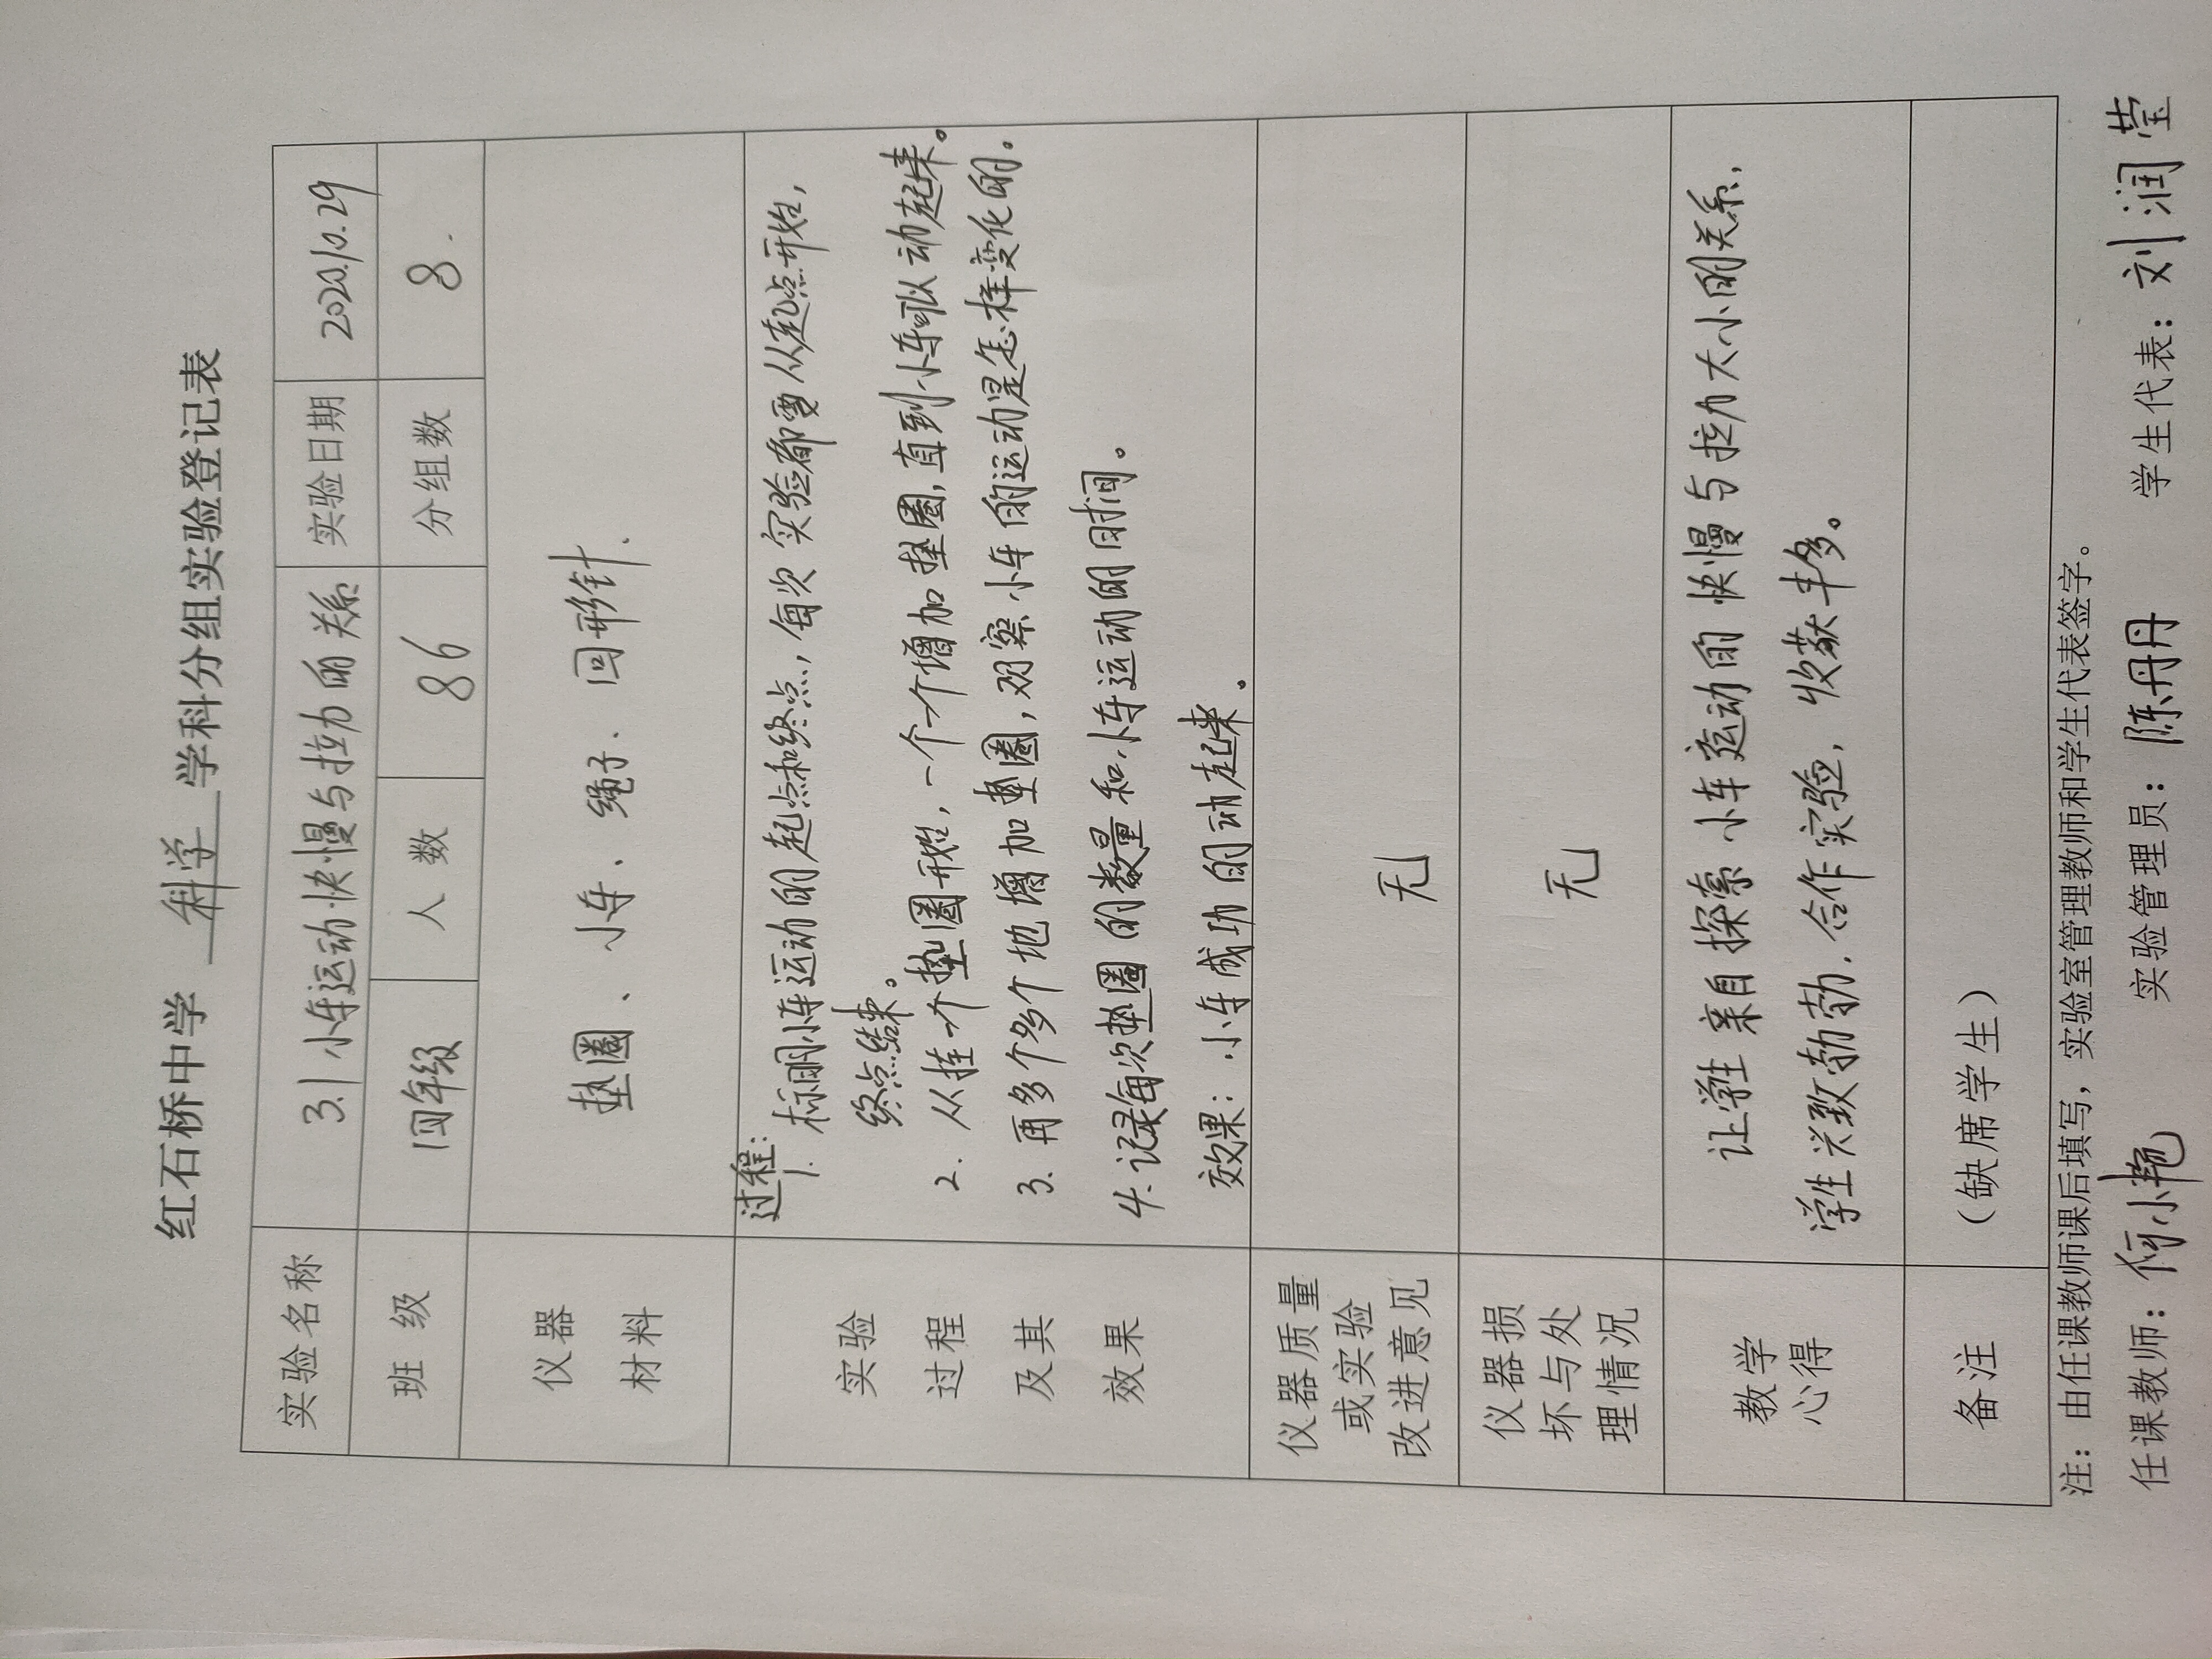 红石桥中学 科学 学科分组实验登记表
实验名称 3.1小车运动快慢与拉力的关系 实验日期 2020.10.29
班 级 四年级 人 数 86 分组数 8.
仪器
材料
垫圈、小车、绳子、回形针.
实验
过程
及其
效果
过程:
1. 标明小车运动的起点和终点,每次实验都要从起点开始,
终点结束。
2. 从挂一个垫圈开始,一个一个增加垫圈,直到小车可以动起来。
3. 再多个多个地增加垫圈,观察小车的运动是怎样变化的。
4. 记录每次垫圈的数量和小车运动的时间。
效果:小车成功的动起来。
仪器质量
或实验
改进意见
无
仪器损
坏与处
理情况
无
教学
心得
让学生亲自探索小车运动的快慢与拉力大小的关系,
学生兴致勃勃,合作实验,收获丰多。
备注 (缺席学生)
注:由任课教师课后填写,实验室管理教师和学生代表签字。
任课教师:何小艳 实验管理员:陈丹丹 学生代表:刘润莹